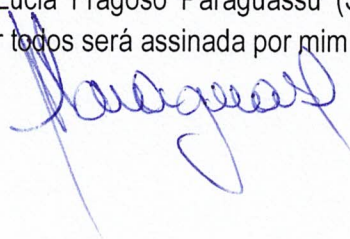 Lúcia Fragoso Paraguassú (S
r todos será assinada por mim